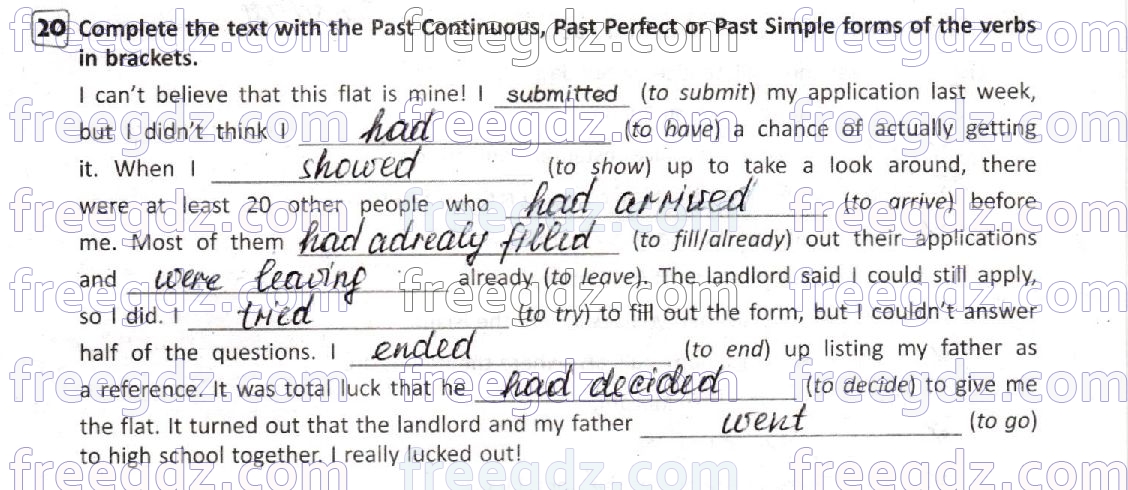 20 Complete the text with the Past Continuous, Past Perfect or Past Simple forms of the verbs
in brackets.
I can't believe that this flat is mine! I submitted (to submit) my application last week,
but I didn't think I had (to have) a chance of actually getting
it. When I showed (to show) up to take a look around, there
were at least 20 other people who had arrived (to arrive) before
me. Most of them had adrealy filled (to fill/already) out their applications
and were leaving already (to leave). The landlord said I could still apply,
so I did. I tried (to try) to fill out the form, but I couldn't answer
half of the questions. I ended (to end) up listing my father as
a reference. It was total luck that he had decided (to decide) to give me
the flat. It turned out that the landlord and my father went (to go)
to high school together. I really lucked out!
freegdz.com freegdz.com freegdz.com
freegdz.com freegdz.com freegdz.com
freegdz.com freegdz.com freegdz.com
freegdz.com freegdz.com freegdz.com
freegdz.com freegdz.com freegdz.com
freegdz.com freegdz.com freegdz.com